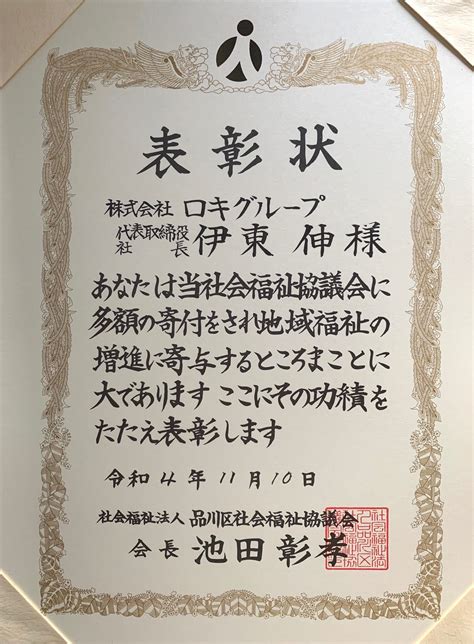 表彰状
株式会社 ロキグループ
代表取締役
社長 伊東 伸様
あなたは当社会福祉協議会に
多額の寄付をされ地域福祉の
増進に寄与するところまことに
大であります ここにその功績を
たたえ表彰します
令和4年11月10日
社会福祉法人 品川区社会福祉協議会
会長 池田彰孝